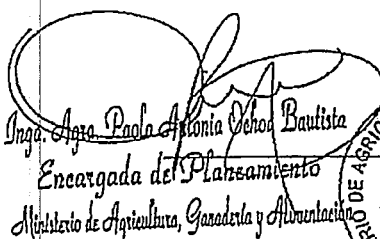 Inga. Agra. Paola Antonia Ochoa Bautista
Encargada de Planeamiento
Ministerio de Agricultura, Ganadería y Alimentación
RIO DE AGRIC